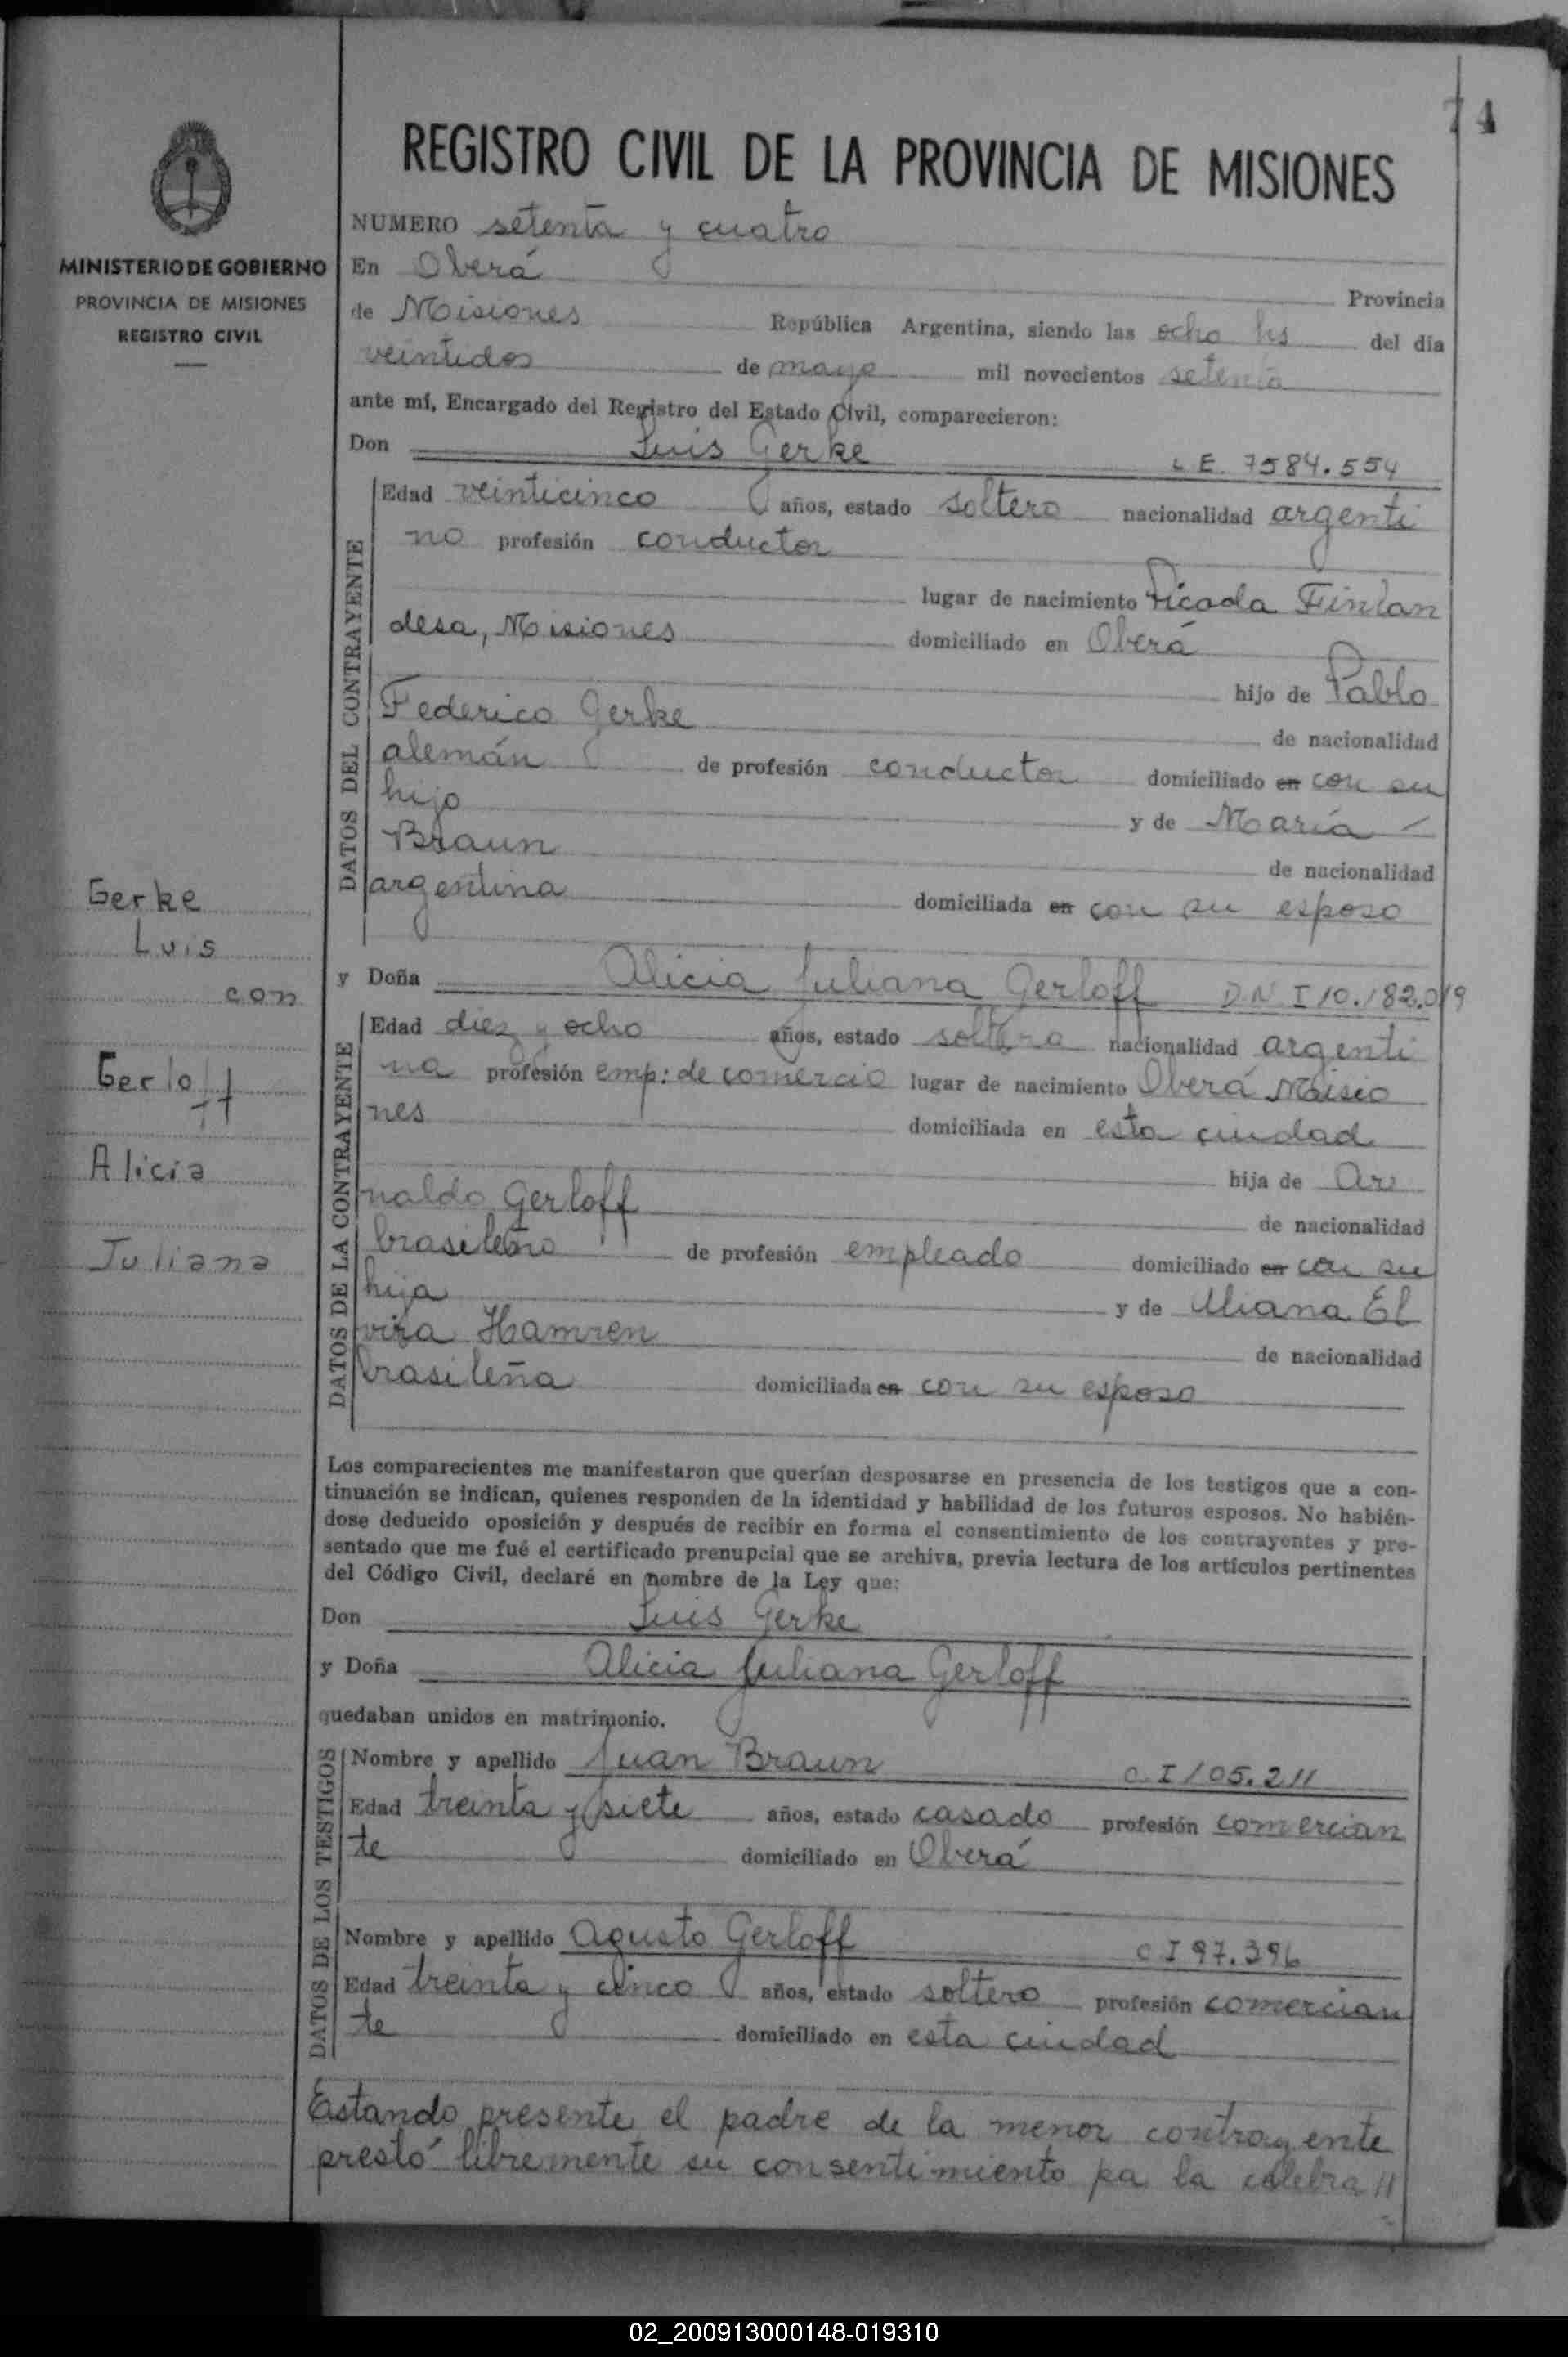 74
REGISTRO CIVIL DE LA PROVINCIA DE MISIONES
MINISTERIO DE GOBIERNO
PROVINCIA DE MISIONES
REGISTRO CIVIL
NUMERO setenta y cuatro
En Oberá Provincia
de Misiones República Argentina, siendo las ocho hs del día
veintidos de mayo mil novecientos setenta
ante mí, Encargado del Registro del Estado Civil, comparecieron:
Don Luis Gerke L E. 7584.554
DATOS DEL CONTRAYENTE
Edad veinticinco años, estado soltero nacionalidad argenti
no profesión conductor
lugar de nacimiento Picada Finlan
desa, Misiones domiciliado en Oberá
hijo de Pablo
Federico Gerke de nacionalidad
alemán de profesión conductor domiciliado en con su
hijo y de María
Braun de nacionalidad
argentina domiciliada en con su esposo
Gerke
Luis
con
Gerloff
Alicia
Juliana
y Doña Alicia Juliana Gerloff D.N.I 10.182.019
DATOS DE LA CONTRAYENTE
Edad diez y ocho años, estado soltera nacionalidad argenti
na profesión emp: de comercio lugar de nacimiento Oberá Misio
nes domiciliada en esta ciudad
hija de Ar
naldo Gerloff de nacionalidad
brasileño de profesión empleado domiciliado en con su
hija y de Uliana El
vira Hamren de nacionalidad
brasileña domiciliada en con su esposo
Los comparecientes me manifestaron que querían desposarse en presencia de los testigos que a con-
tinuación se indican, quienes responden de la identidad y habilidad de los futuros esposos. No habién-
dose deducido oposición y después de recibir en forma el consentimiento de los contrayentes y pre-
sentado que me fué el certificado prenupcial que se archiva, previa lectura de los artículos pertinentes
del Código Civil, declaré en nombre de la Ley que:
Don Luis Gerke
y Doña Alicia Juliana Gerloff
quedaban unidos en matrimonio.
DATOS DE LOS TESTIGOS
Nombre y apellido Juan Braun C.I 105.211
Edad treinta y siete años, estado casado profesión comercian
te domiciliado en Oberá
Nombre y apellido Agusto Gerloff C I 97.396
Edad treinta y cinco años, estado soltero profesión comercian
te domiciliado en esta ciudad
Estando presente el padre de la menor contrayente
prestó libremente su consentimiento pa la celebra //
02_200913000148-019310